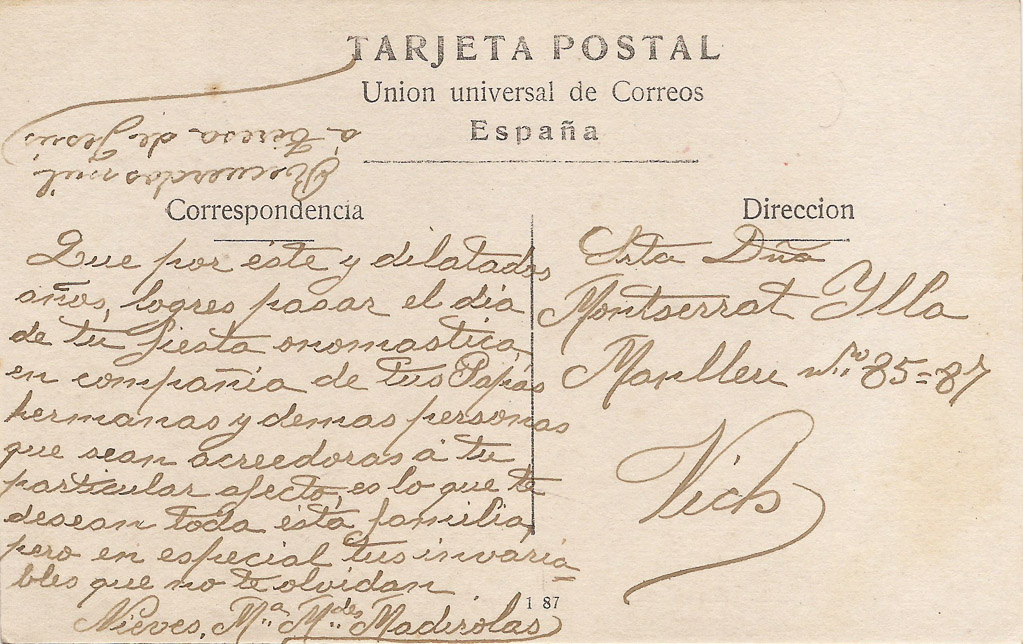 TARJETA POSTAL
Union universal de Correos
España
Recuerdos mil
á Teresa de Jesús
Correspondencia
Que por éste y dilatados
años, logres pasar el día
de tu fiesta onomastica,
en compañia de tus Papás
hermanas y demas personas
que sean acreedoras á tu
particular afecto, es lo que te
desean toda ésta familia,
pero en especial tus invaria=
bles que no te olvidan
Nieves, Mª. Mdes Madirolas
Direccion
Srta Dña
Montserrat Ylla
Manlleu nº. 85=87
Vich
1 87